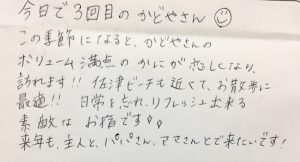 今日で3回目のかどやさん☺
この季節になると、かどやさんの
ボリューム満点のかにが恋しくなり、
訪れます!! 佐津ビーチも近くて、お散歩に
最適!! 日常を忘れ、リフレッシュ出来る
素敵な お宿です
来年も、主人と、パパさん、ママさんとで来たいです!